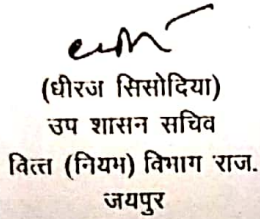 (धीरज सिसोदिया)
उप शासन सचिव
वित्त (नियम) विभाग राज.
जयपुर